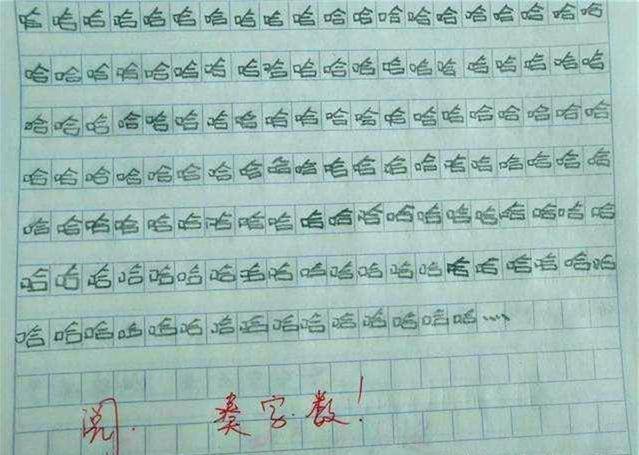 哈哈哈哈哈哈哈哈哈哈哈哈哈哈哈哈哈哈哈哈
哈哈哈哈哈哈哈哈哈哈哈哈哈哈哈哈哈哈哈哈
哈哈哈哈哈哈哈哈哈哈哈哈哈哈哈哈哈哈哈哈
哈哈哈哈哈哈哈哈哈哈哈哈哈哈哈哈哈哈哈哈
哈哈哈哈哈哈哈哈哈哈哈哈哈哈哈哈哈哈哈哈
哈哈哈哈哈哈哈哈哈哈哈哈哈哈哈哈哈哈哈哈
哈哈哈哈哈哈哈哈哈哈哈哈哈哈哈....
阅. 字数!